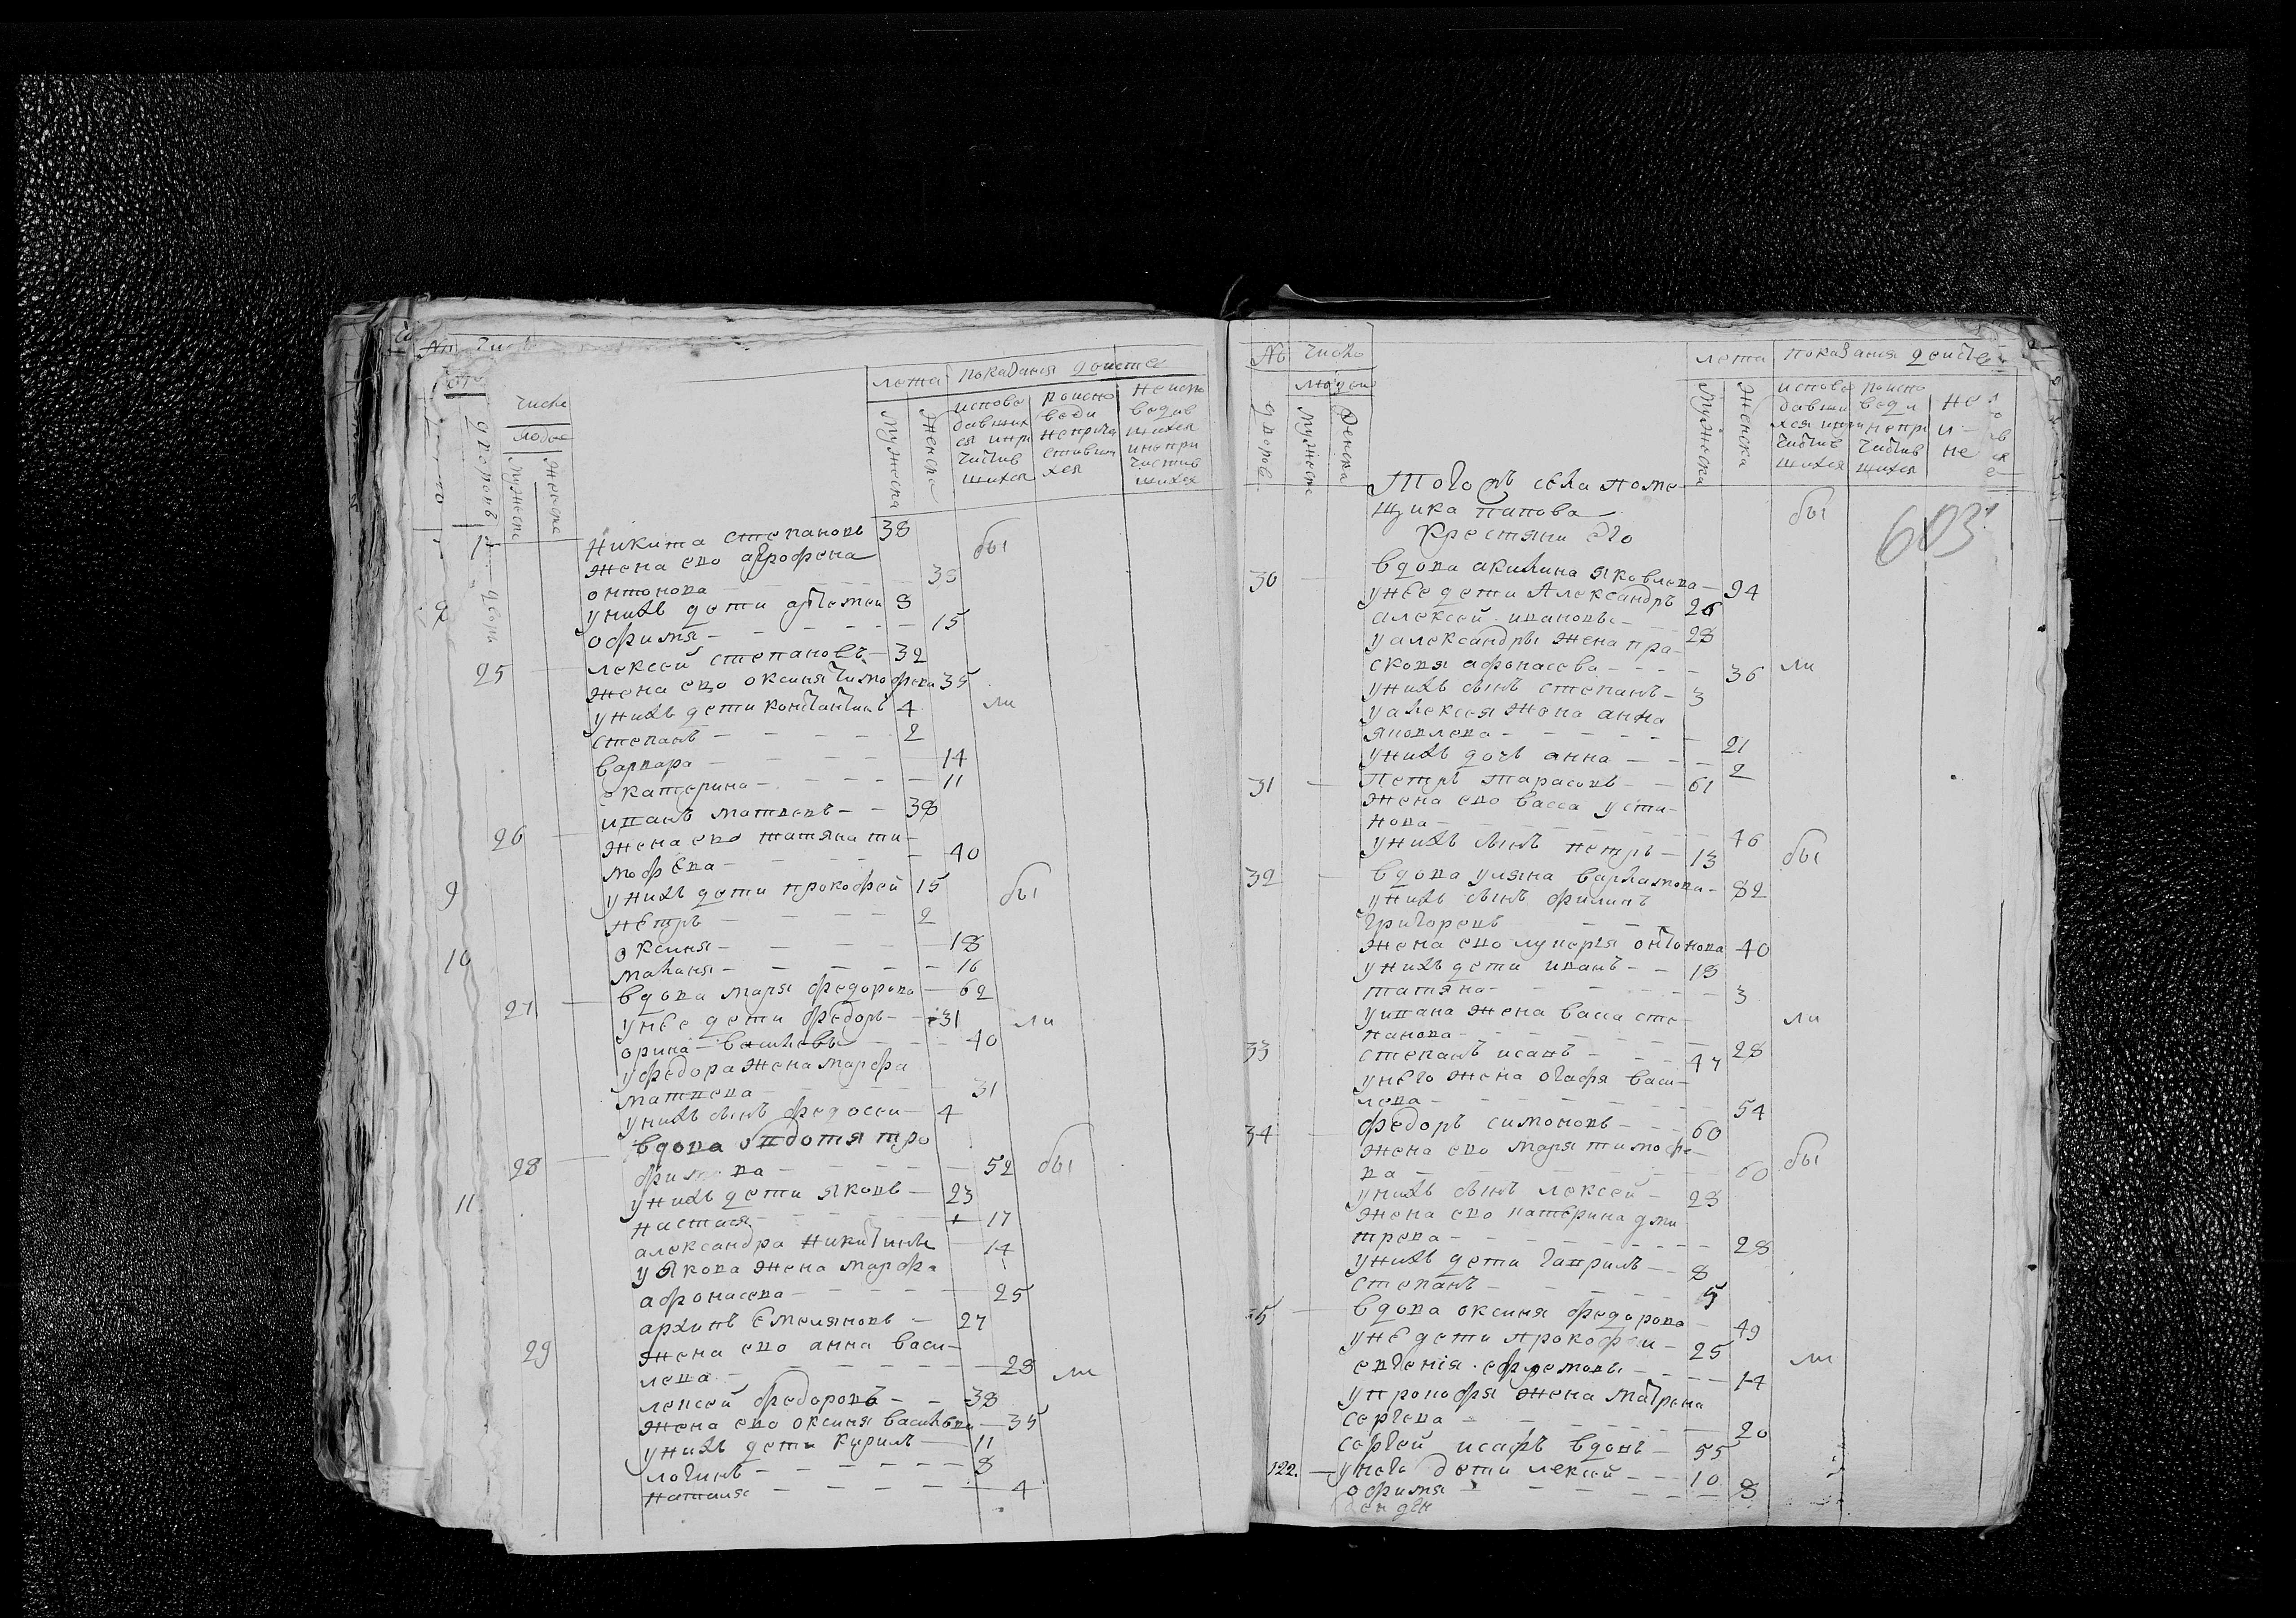 число
людей
лета показания действа
дворовъ
мужеска
женска
мужеска
женска
испове
давших
ся и при
частив
шихся
по испо
веди
не прича
стивши
хся
не испо
ведав
шихся
и не при
частив
шихся
Никита степановъ 38
жена ево агрофена
онтонова 35
у нихъ дети артемеи 8
офимя 15 бы
25 лексей степановъ 32
жена ево оксиня тимофева 35
у нихъ дети константинъ 4 ли
степанъ 2
варвара 14
екатерина 11
26 иванъ матвевъ 38
жена ево татяна ти
мофева 40
у нихъ дети прокофей 15 бы
петръ 2
оксиня 18
маланя 16
27 вдова маря федорова 62
у нее дети федоръ 31 ли
орина васильевы 40
у федора жена марфа
матвева 31
у нихъ сынъ федосеи 4
28 вдова овдотя тро
фимова 52 бы
у нихъ дети яковъ 23
настася 17
александра никитины 14
у якова жена марфа
афонасева 25
29 архипъ емеляновъ 27
жена ево анна васи
лева 28 ли
лексей федоровъ 38
жена ево оксиня василева 35
у нихъ дети кирилъ 11
логинъ 8
наталя 4
№ число
людей
лета показания действ
дворовъ
мужеска
женска
мужеска
женска
испове
давши
хся и при
частив
шихся
по испо
веди
не при
частив
шихся
не
и
не
603
Того жъ села поме
щика попова бы
крестяни его
30 вдова акилина яковлева 94
у нее дети Александръ 26
алексей ивановы 28
у александры жена пра
сковя афонасева 36 ли
у нихъ сынъ степанъ 3
у алексея жена анна
яковлева 21
у нихъ дочь анна 2
31 Петръ тарасовъ 61
жена ево васса усти
нова 46
у нихъ сынъ петръ 13 бы
32 вдова уляна варламова 82
у нихъ сынъ филипъ
григоревъ
жена ево лукеря онтонова 40
у нихъ дети иванъ 18
татяна 3
у ивана жена васса сте
панова 28 ли
33 степанъ исаевъ 47
у него жена огафя васи
лева 54
34 федоръ симоновъ 60
жена ево маря тимофе
ва 60 бы
у нихъ сынъ лексей 28
жена ево катерина дми
трева 28
у нихъ дети гаврилъ 8
степанъ 5
35 вдова оксиня федорова 49
у нее дети прокофеи 25
евгения ефремовы 14 ли
у прокофя жена матрена
сергева 20
сергей исаевъ вдовъ 55
122. у него дети лексей 10
офимя 8